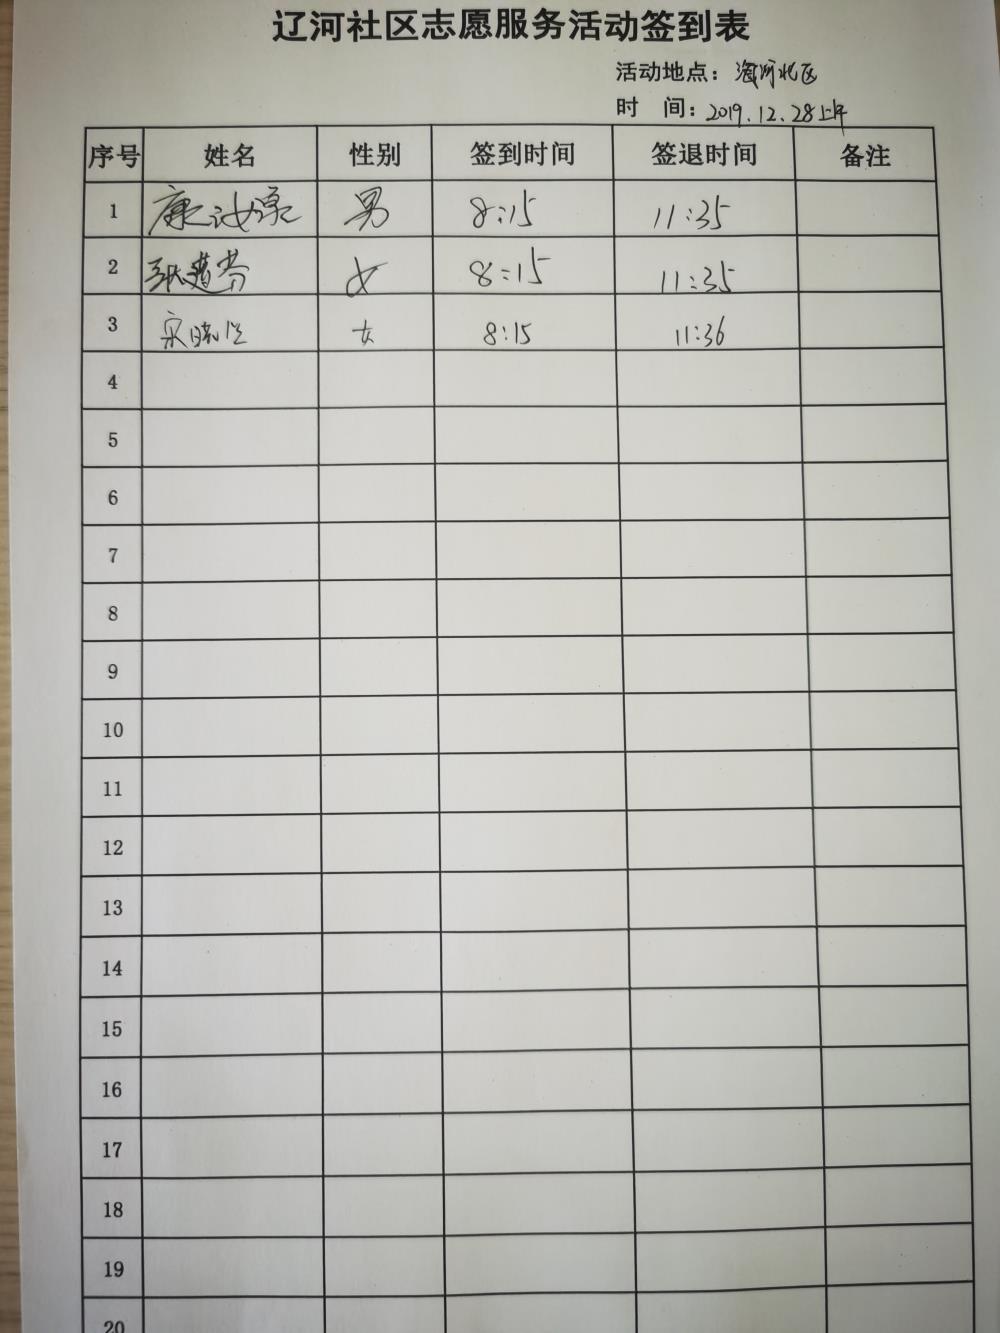 辽河社区志愿服务活动签到表
活动地点：海河北区
时 间：2019.12.28上午
序号 姓名 性别 签到时间 签退时间 备注
1 康 男 8:15 11:35
2 女 8:15 11:35
3 宋晓 女 8:15 11:36
4
5
6
7
8
9
10
11
12
13
14
15
16
17
18
19
20